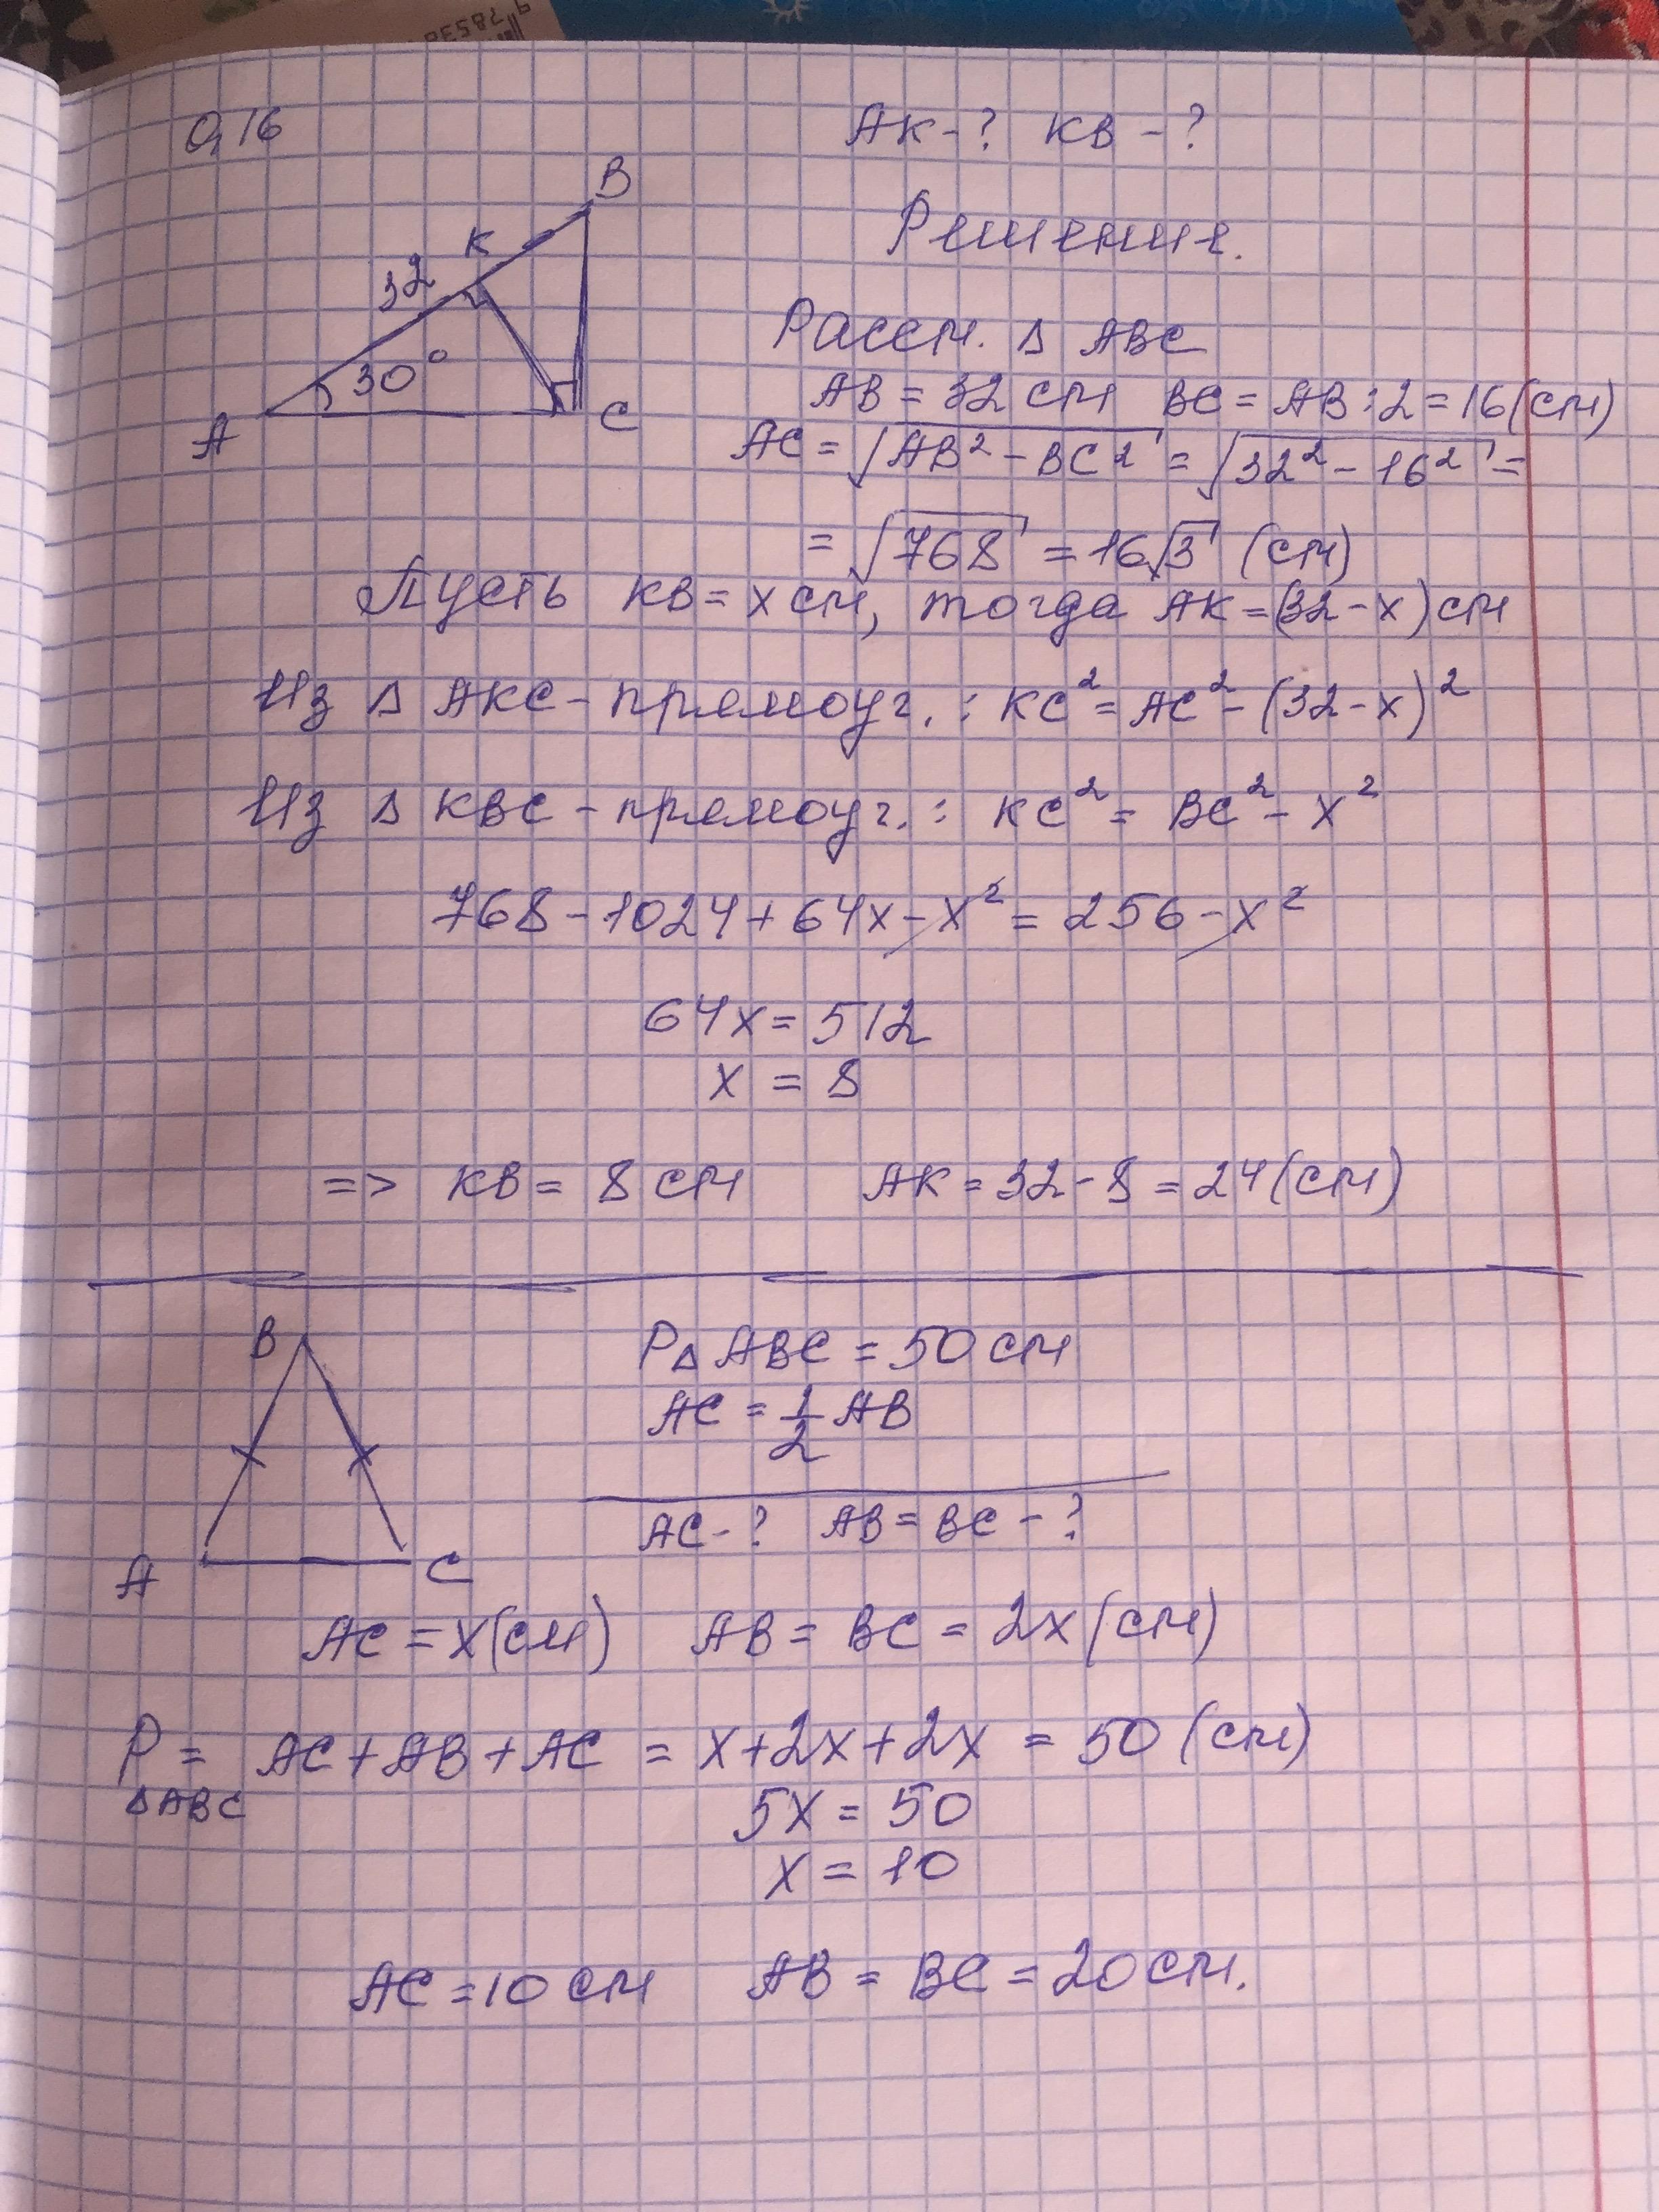 0,16
АК-? КВ-?
B
К
32
30°
А
С
Решение.
Рассм. Δ АВС
АВ = 32 см ВС = АВ:2 = 16(см)
АС = √АВ² - ВС² = √32² - 16² =
= √768 = 16√3 (см)
Пусть КВ = х см, тогда АК = (32-х) см
Из Δ АКС - прямоуг.: КС² = АС² - (32-х)²
Из Δ КВС - прямоуг.: КС² = ВС² - х²
768 - 1024 + 64х - х² = 256 - х²
64х = 512
х = 8
=> КВ = 8 см АК = 32-8 = 24(см)
В
А
С
PΔ ABC = 50 см
АС = 1/2 АВ
АС-? АВ = ВС -?
АС = х(см) АВ = ВС = 2х(см)
P ΔАВС = АС + АВ + АС = х+2х+2х = 50 (см)
5х = 50
х = 10
АС = 10 см АВ = ВС = 20 см.